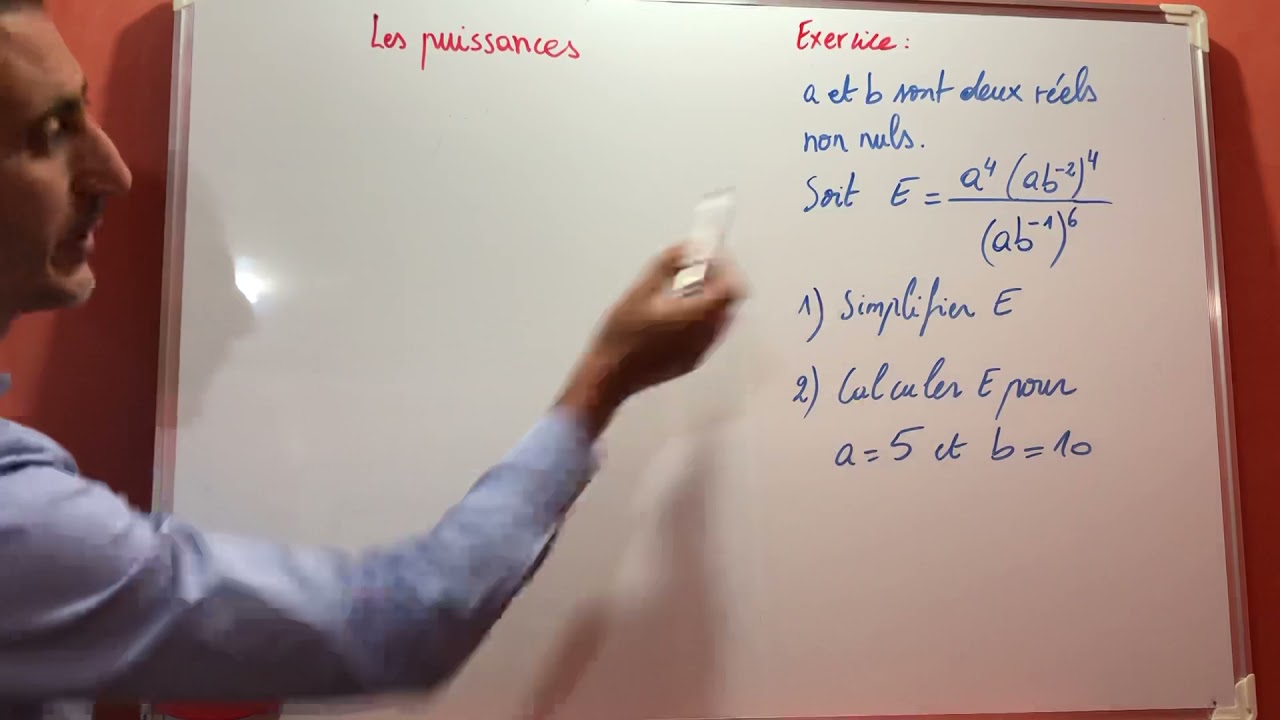 Les puissances
Exercice :
a et b sont deux réels
non nuls.
Soit E = a⁴ (ab⁻²)⁴ / (ab⁻¹)⁶
1) Simplifier E
2) Calculer E pour
a = 5 et b = 10